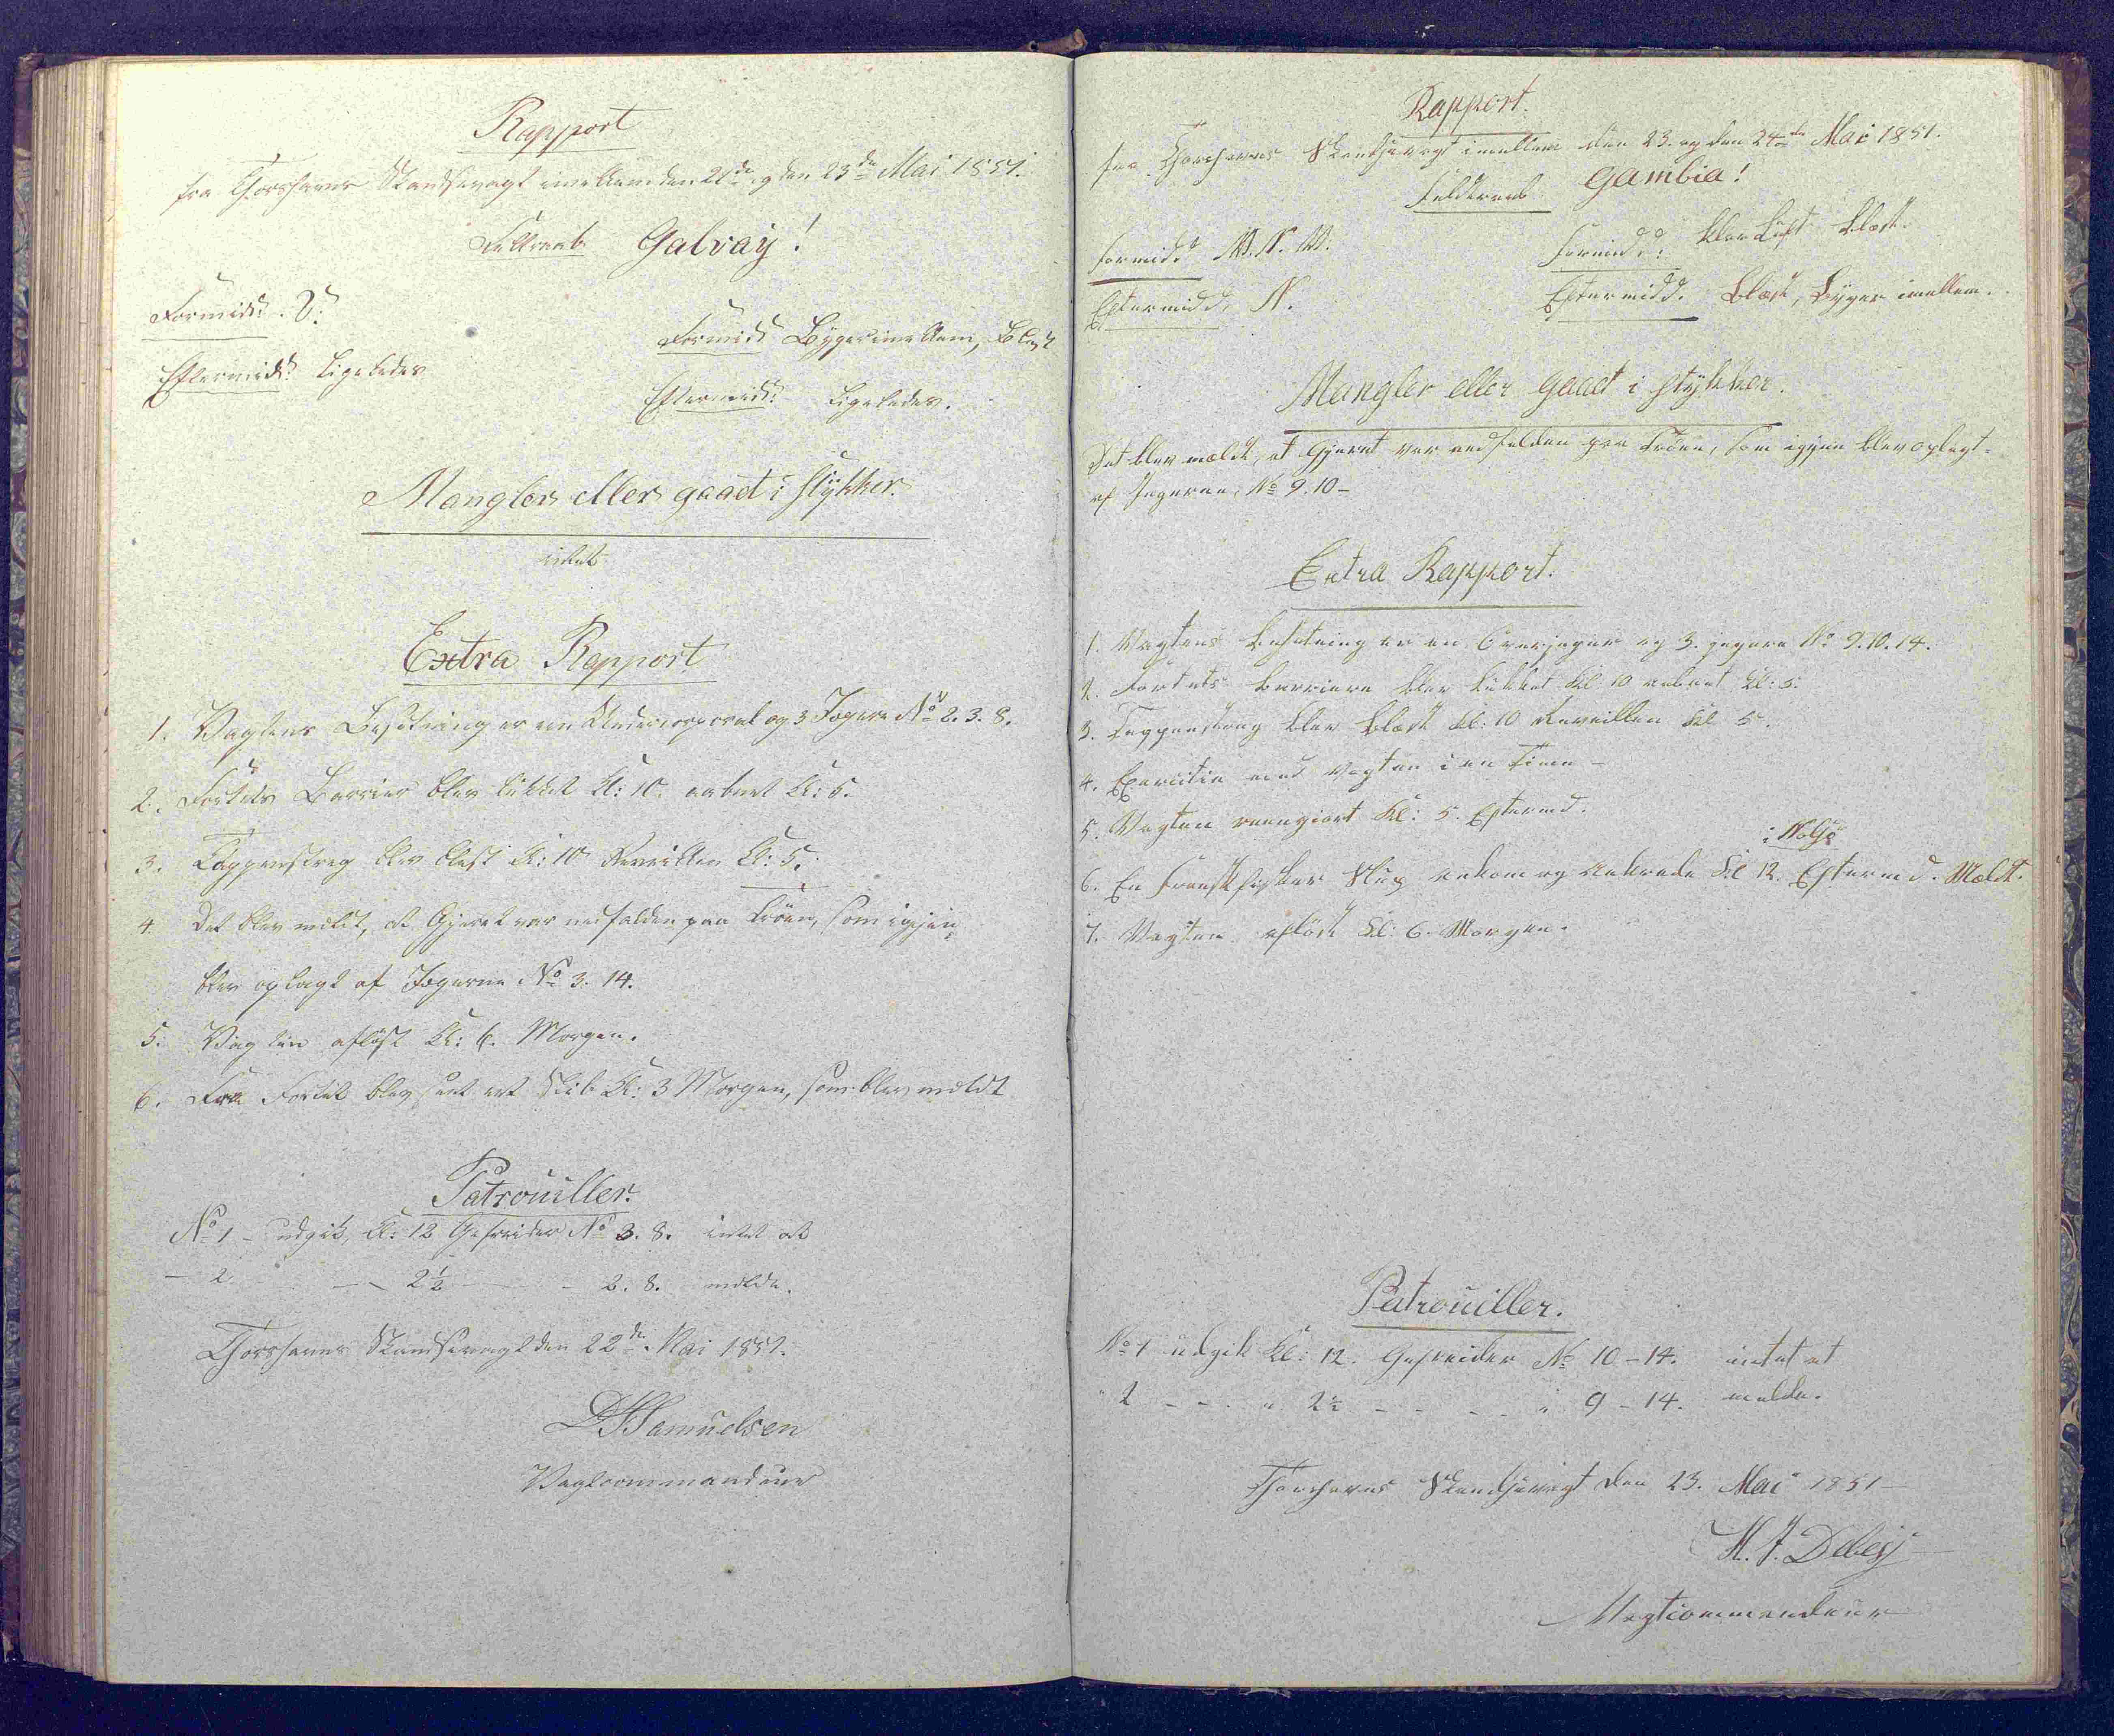 Rapport
fra Thorshavns Skandsevagt imellem den 22de og den 23de Mai 1851.
Feltraab Galvay!
Formidd. V.
Formidd Byger imellem, Blæst
Eftermidd. Ligeledes
Eftermidd. Ligeledes.
Mangler eller gaaet i stykker.
intet
Extra Rapport
1. Vagtens Besetning er en Undercorporal og 3 Jegere No 2. 3. 8.
2. Fortets Barrier blev lukket Kl: 10. aabnet Kl: 5.
3. Tappenstreg blev blæst Kl: 10 Reveillen Kl: 5.
4. Det blev meldt, at Gjeret var nedfalden paa Tröen, som igjen
blev oplagt af Jegerne No 3. 14.
5. Vagten aflöst Kl: 6. Morgen.
6. Fra Fortet blev seet et Skib Kl: 3 Morgen, som blev meldt
Patrouiller.
No 1 - udgik Kl: 12 Gefreider No 3. 8. intet at
- 2 - - 2½ - - 2. 8. melde.
Thorshavns Skandsevagt den 22de Mai 1851.
DHSamuelsen
Vagtcommandeur
Rapport.
fra Thorshavns Skandsevagt imellem den 23. og den 24de Mai 1851.
Feldtraab Gambia!
Formidd N.W.
Formidd: klar Luft blæst.
Eftermidd, N.
Eftermidd. blæst, Byger imellem.
Mangler eller Gaaet i stykker.
Det blev meldt, at Gjeret var nedfalden paa Tröen, som igjen blev oplagt
af Jegerne, No 9. 10 -
Extra Rapport.
1. Vagtens besetning er en Overjeger og 3. jegere No 9. 10. 14.
2. Fortets barriere blev lukket Kl: 10 aabnet Kl: 5.
3. Tappenstreg blev blæst Kl: 10 Reveillen Kl 5.
4. Exercitie med Vagten i en Time -
5. Vagten reengiort Kl: 5. Eftermd.
i Nolsö
6. En Fransk fisker Slup ankom og ankrede Kl 12. Eftermd. Mældt.
7. Vagten aflöst Kl: 6. Morgen.
Patrouiller.
No 1 udgik Kl: 12. Gefreider No 10 - 14. intet at
" 2 - - " 2½ - - - " 9 - 14. melde.
Thorshavns Skandsevagt den 23. Mai 1851 -
M. J. Debesj
Vagtcommandeur